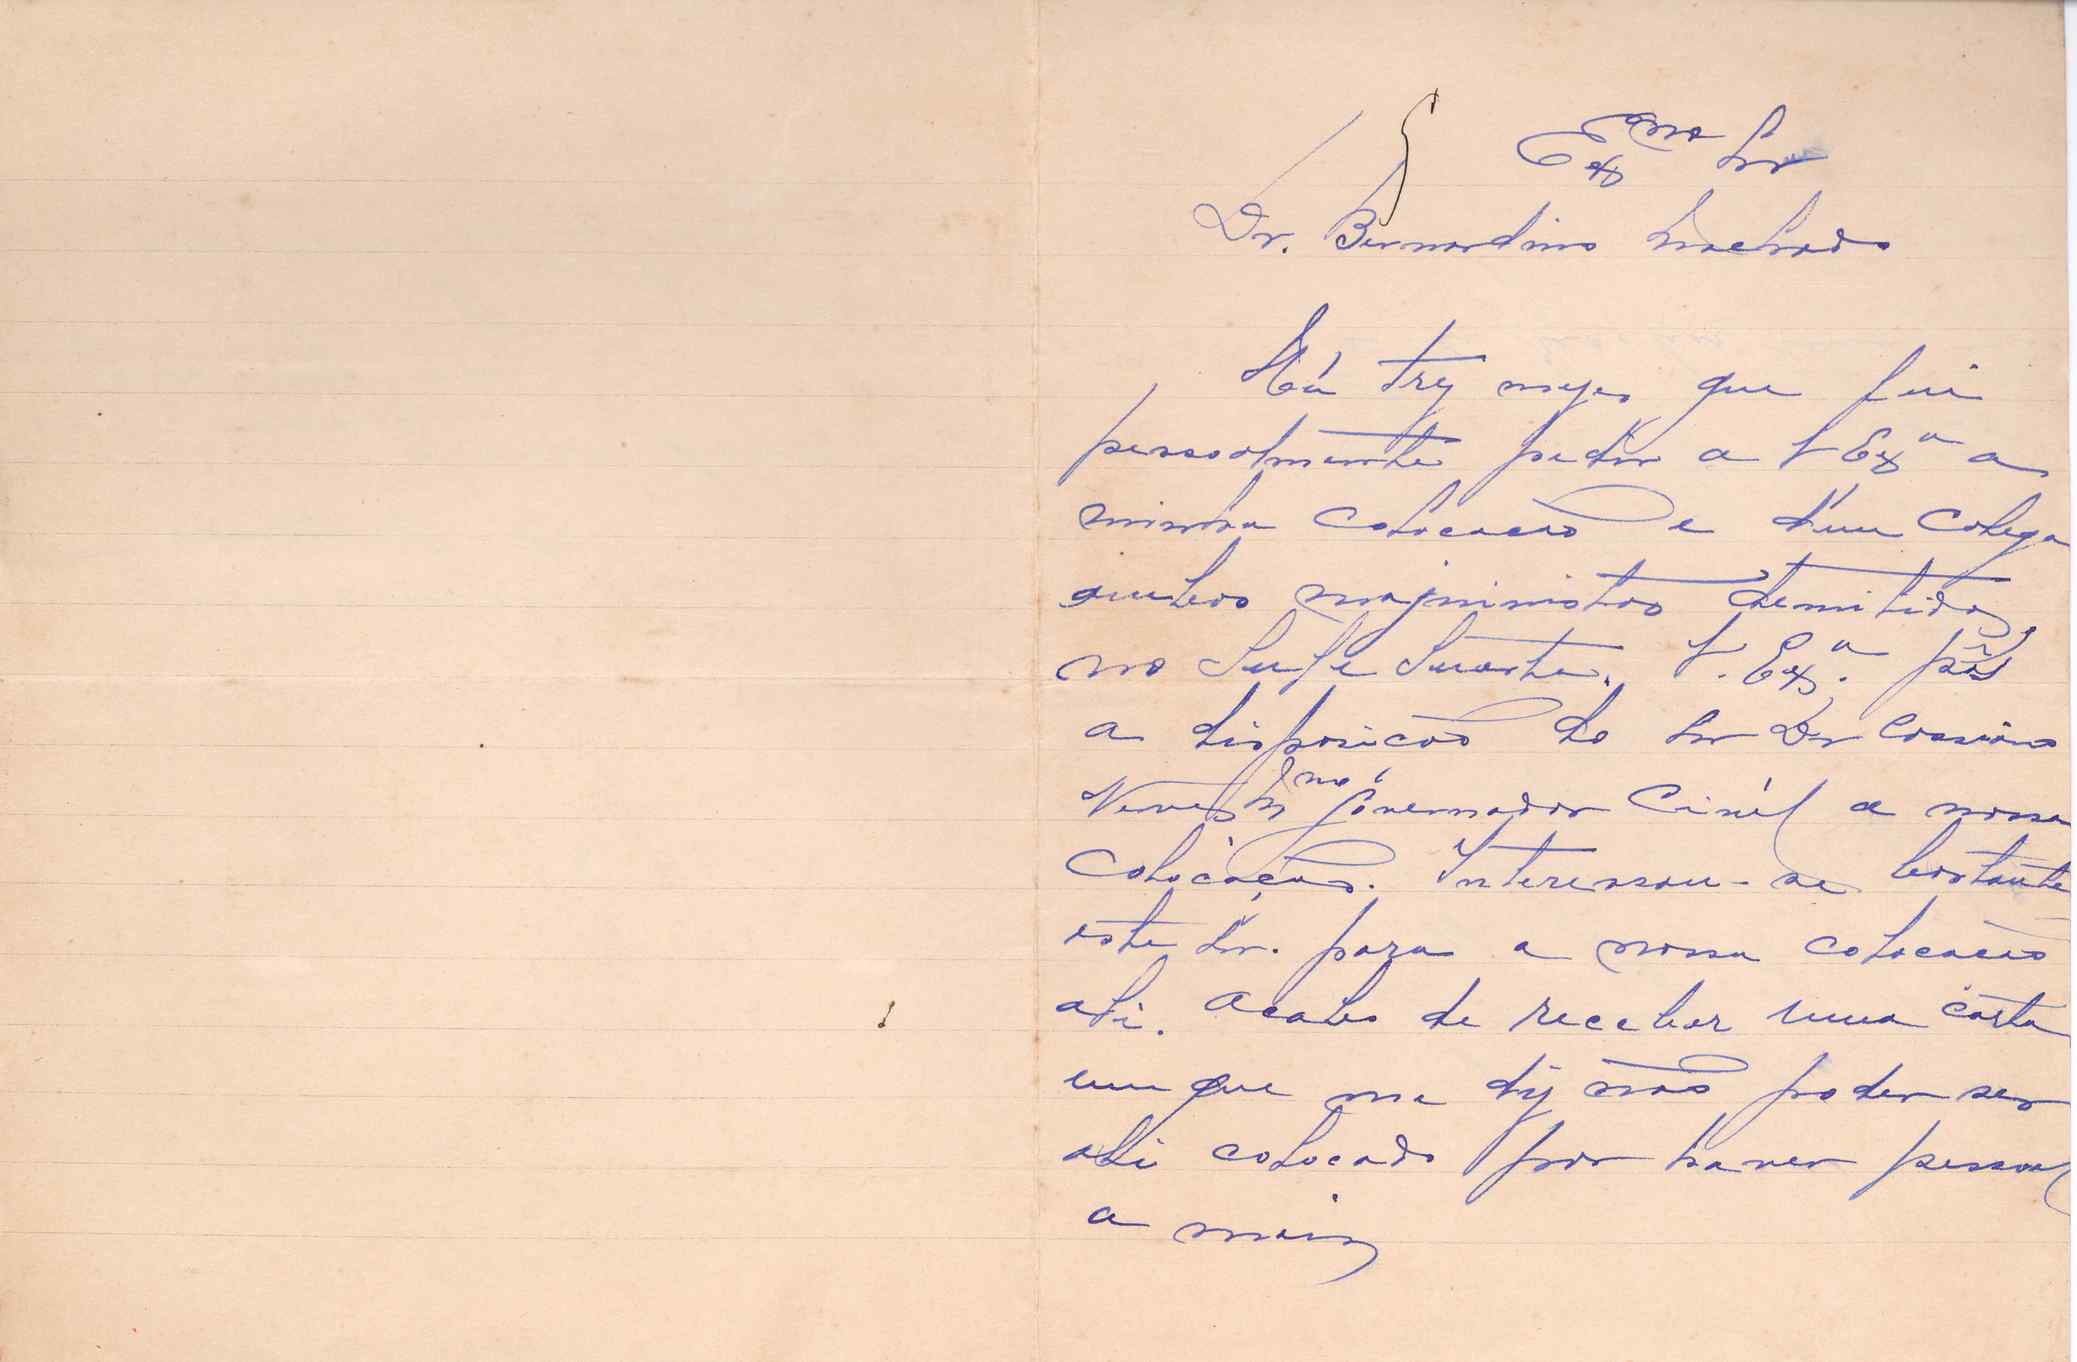 Exmo Snr
Dr. Bernardino Machado
Há trez mezes que fui
pessoalmente pedir a V Exª a
minha colocacão e d'um colega
ambos maquinistas demitidos
no Sul e Sueste. V. Exª. pôs
a disposicão do Snr Dr Cassiano
Neves Dmo Governador Civíl a nossa
colócação. Interessou-se bastante
este Snr. para a nossa colocacão
ali. Acabo de receber uma carta
em que me diz não poder ser
ali colocado por haver pessoal
a mais